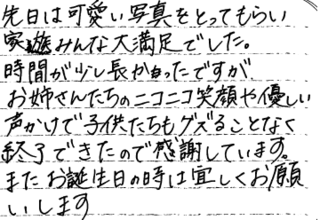 先日は可愛い写真をとってもらい
家族みんな大満足でした。
時間が少し長かったですが
お姉さんたちのニコニコ笑顔や優しい
声かけで子供たちもグズることなく
終了できたので感謝しています。
またお誕生日の時は宜しくお願
いします